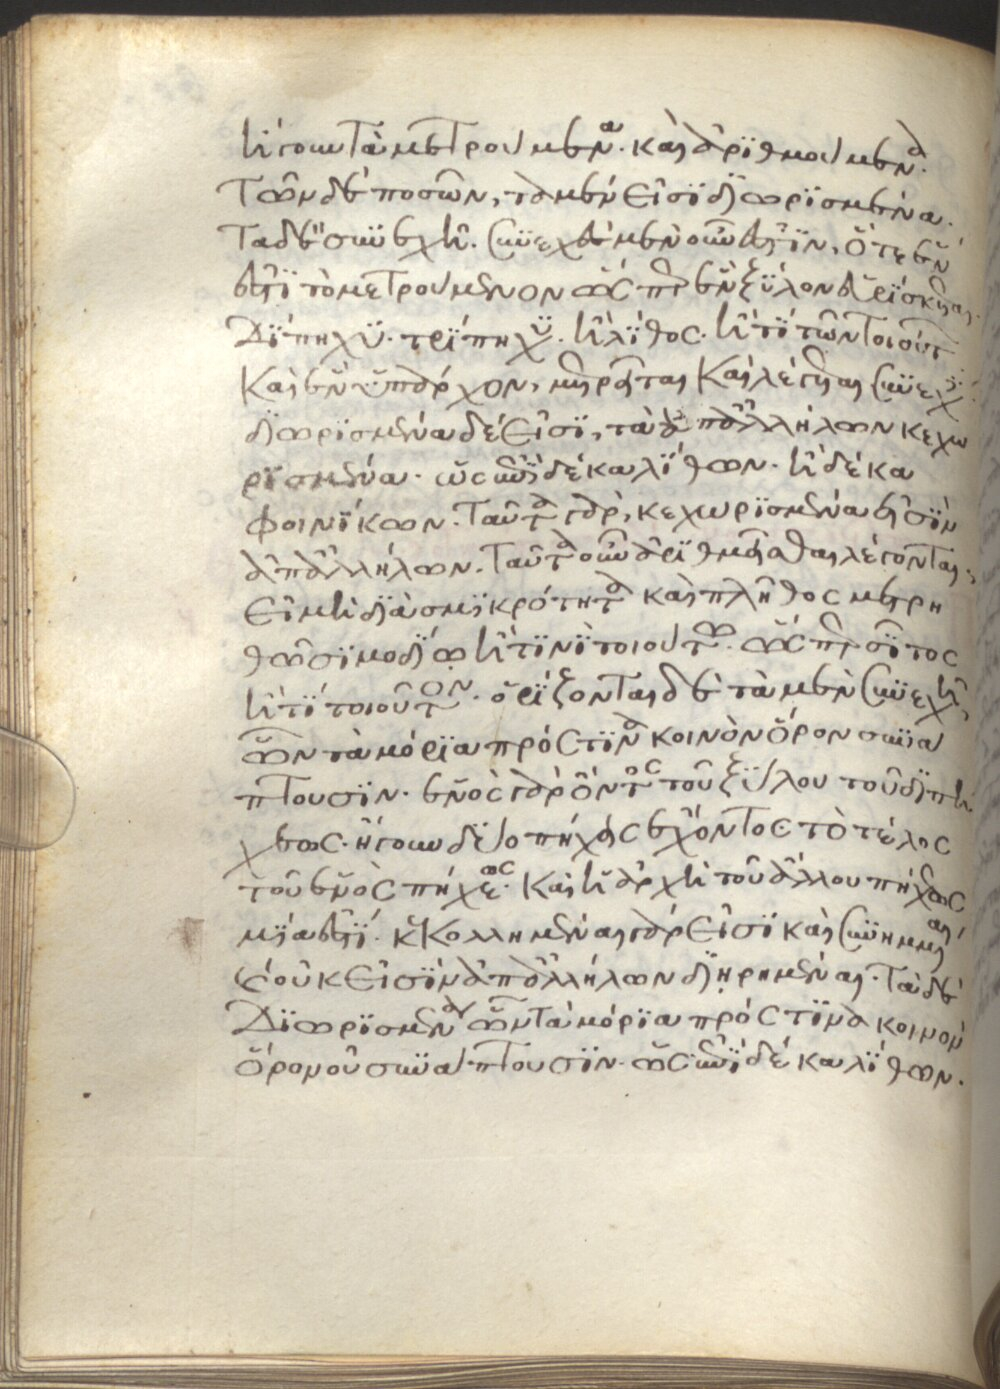 ἤγουν τὰ μετρούμενα. καὶ ἀριθμούμενα.
Τῶν δὲ ποσῶν, τὰ μέν εἰσϊ δϊωρϊσμένα.
Τὰ δὲ συνεχῆ. συνεχὲς μὲν οὖν ἐστϊν, ὅτε ἓν
ἐστϊ τὸ μετρούμενον ὥσπερ ἓν ξύλον εὑρίσκεται
Δϊπηχυ. τρίπηχυ. ἢ λϊθος. ἢ τϊ τῶν τοιούτ
Καὶ ἓν ὑπάρχον, μετρεῖται καὶ λέγεται συνεχ
δϊωρϊσμένα δέ εἰσϊ, τὰ ἀπἀλλήλων κεχω
ρϊσμένα. ὡς ἐπὶ δέκα λϊθων. ἢ δέκα
φοινϊκων. Ταῦτα γὰρ, κεχωρϊσμένα εἰσϊν
ἀπἀλλήλων. Ταῦτα οὖν ἀρϊθμεῖσθαι λέγονται.
Εἰ μὴ δϊὰ σμϊκρότητα καὶ πλῆθος μετρη
θῶσϊ μοδϊω ἢ τϊνϊ τοιούτω. ὥσπερ σῖτος
ἢ τϊ τοιοῦτον. ὁρϊζονται δὲ τὰ μὲν συνεχῆ,
ὧν τὰ μόρϊα πρός τϊνα κοινὸν ὅρον συνά
πτουσϊν. ἑνὸς γὰρ ὄντος τοῦ ξύλου τοῦ δϊπή
χεως. ἤγουν δύο πήχεις ἔχοντος τὸ τέλος
τοῦ ἑνὸς πήχεως. Καὶ ἡ ἀρχὴ τοῦ ἄλλου πήχεως
μϊα ἐστϊ. κεκολλημέναι γάρ εἰσϊ καὶ συνημμέναι
οὔκ εἰσϊν ἀπἀλλήλων δϊηρημέναι. Τὰ δὲ
Δϊωρϊσμένα ὧν τὰ μόρϊα πρός τϊνα κοινὸν
ὅρον οὐ συνάπτουσϊν. ὡς ἐπὶ δέκα λϊθων.